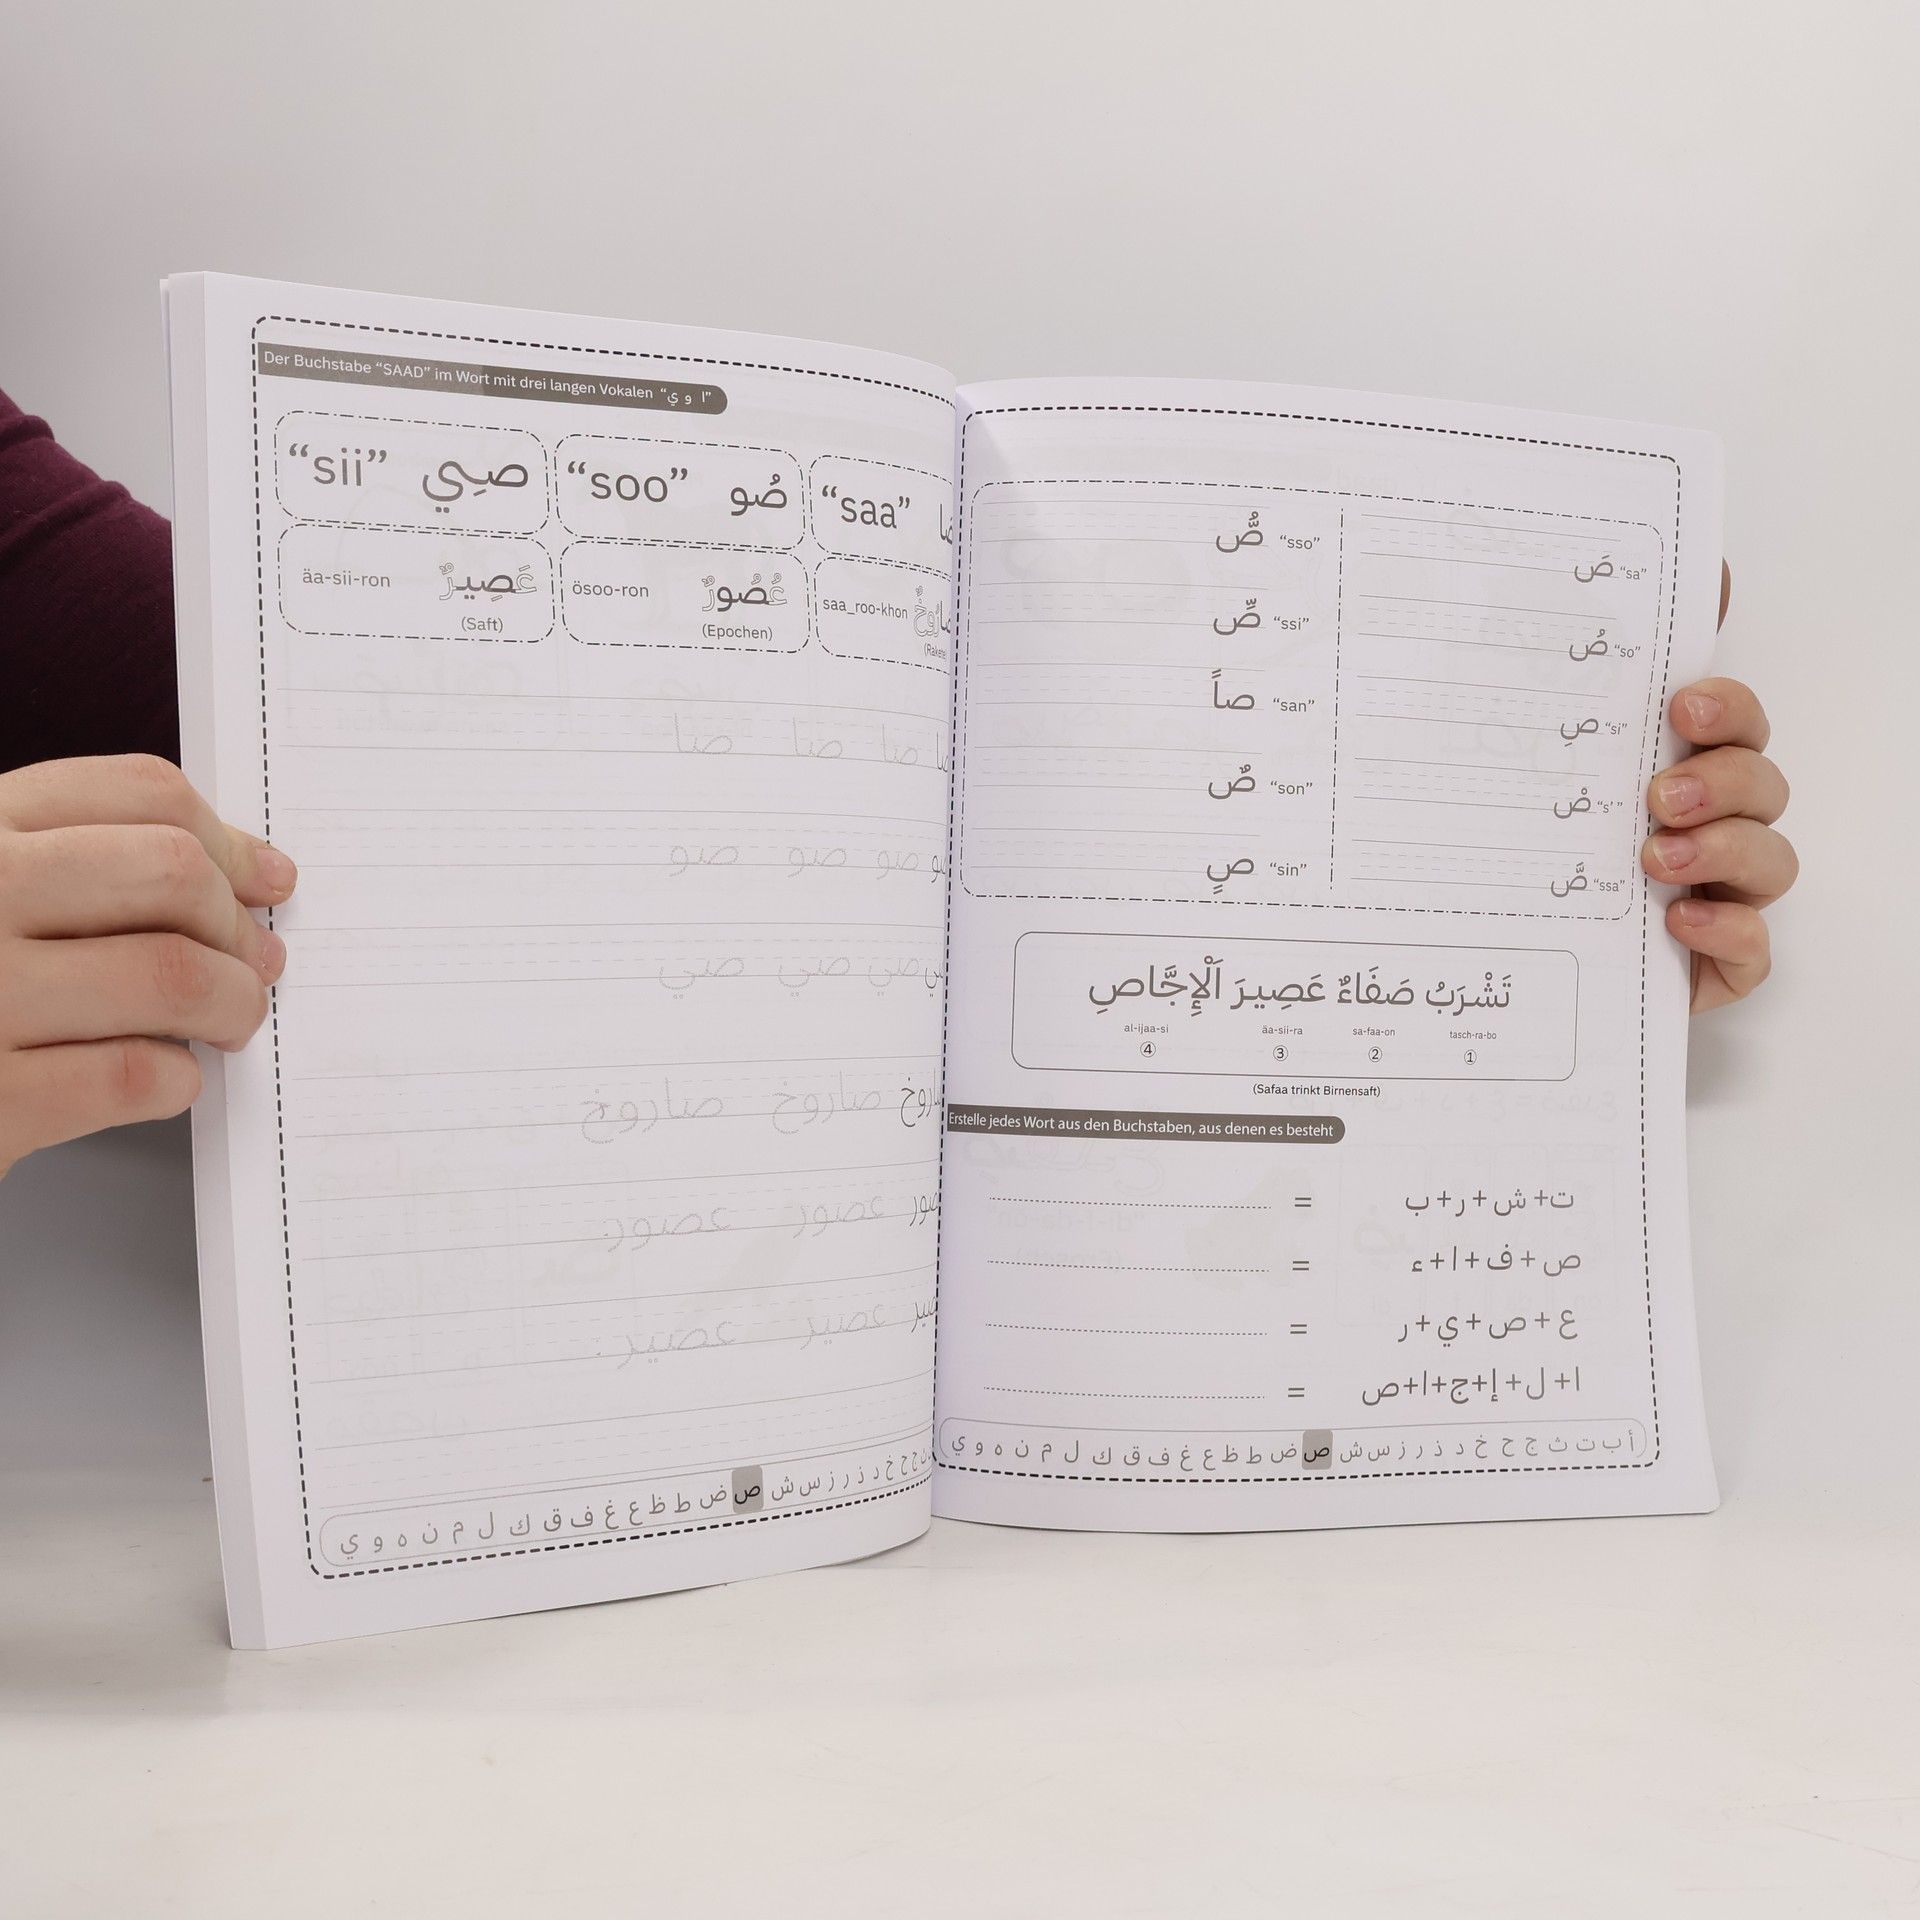 Der Buchstabe “SAAD” im Wort mit drei langen Vokalen “ا و ي”
“sii” صِي “soo” صُو “saa”
äa-sii-ron عَصِيرٌ ösoo-ron عُصُورٌ saa_roo-khon
(Saft) (Epochen)
صا صا صا
صو صو صو
صي صي صي
صاروخ صاروخ
عصور عصور
عصير عصير
ر ز س ش ص ض ط ظ ع غ ف ق ك ل م ن ه و ي
صُّ “sso” صَ “sa”
صِّ “ssi” صُ “so”
صاً “san” صِ “si”
صٌ “son” صْ “s’ ”
صٍ “sin” صَّ “ssa”
تَشْرَبُ صَفَاءٌ عَصِيرَ اَلْإِجَّاصِ
al-ijaa-si äa-sii-ra sa-faa-on tasch-ra-bo
④ ③ ② ①
(Safaa trinkt Birnensaft)
Erstelle jedes Wort aus den Buchstaben, aus denen es besteht
ت+ ش + ر + ب =
ص + ف + ا + ء =
ع + ص + ي + ر =
ا + ل + إ+ج+ا+ص =
أ ب ت ث ج ح خ د ذ ر ز س ش ص ض ط ظ ع غ ف ق ك ل م ن ه و ي